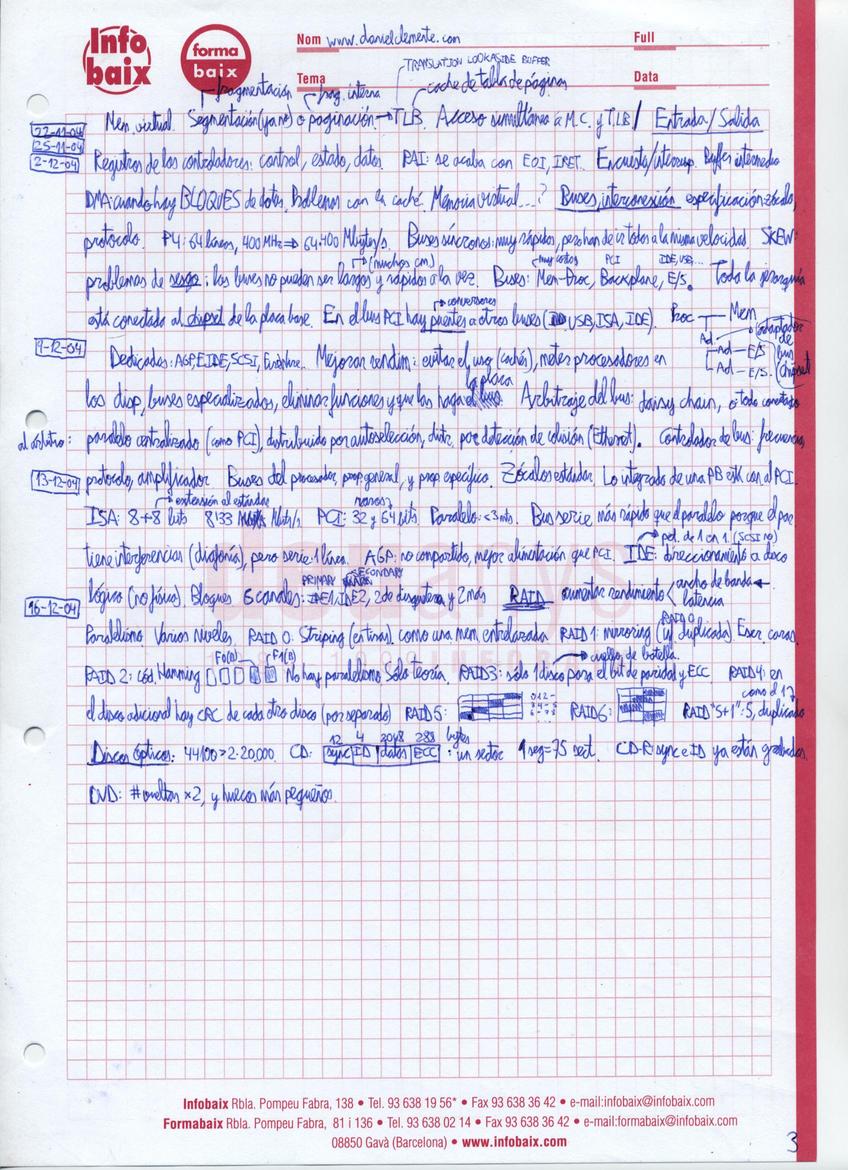 Info baix
forma baix
Nom www.danielclemente.com Full
Tema Data
TRANSLATION LOOKASIDE BUFFER
fragmentación frag. interna cache de tabla de páginas
22-11-04 Mem. virtual. Segmentación (ya no) o paginación → TLB. Acceso simultáneo a M.C. y TLB / Entrada/Salida
25-11-04
2-12-04 Registros de los controladores: control, estado, datos. RAI: se acaba con EOI, IRET. Encuesta/interrup. Buffer intermedio
DMA: cuando hay BLOQUES de datos. Problemas con la caché. Memoria virtual...? Buses, interconexión especificación: zócalo,
protocolo. P4: 64 líneas, 400 MHz ⇒ 64·400 Mbytes/s. Buses síncronos: muy rápidos, pero han de ir todos a la misma velocidad. SKEW:
(muchos cm) muy cortos PCI IDE, USB...
problemas de sesgo; los buses no pueden ser largos y rápidos a la vez. Buses: Mem-Proc, Backplane, E/S. Toda la jerarquía
conversores
está conectada al chipset de la placa base. En el bus PCI hay puentes a otros buses (USB, ISA, IDE). Proc Mem
Ad. adaptador de bus (chipset)
Ad — E/S
Ad — E/S
9-12-04 Dedicados: AGP, EIDE, SCSI, Mejorar rendim: evitar el uso (cachés), meter procesadores en
la placa
los disp, buses especializados, eliminar funciones y que las haga Arbitraje del bus: daisy chain, o todo conectado
al árbitro: paralelo centralizado (como PCI), distribuido por autoselección, distr. por detección de colisión (Ethernet). Controlador de bus: frecuencia,
13-12-04 protocolo, amplificador. Buses del procesador, prop. general, y prop. específico. Zócalos estándar. Lo integrado de una PB está con al PCI.
extensión al estándar raros
ISA: 8+8 bits 8'33 Mbits/s PCI: 32 y 64 bits. Paralelo: <3 mts. Bus serie más rápido que el paralelo porque el par
pet. de 1 en 1 (SCSI no)
tiene interferencias (diafonía), pero serie: 1 línea. AGP: no compartido, mejor alimentación que PCI. IDE: direccionamiento a disco
PRIMARY SECONDARY
lógico (no físico). Bloques 6 canales: IDE1, IDE2, 2 de disquetera y 2 más RAID aumentar rendimiento < ancho de banda
latencia
16-12-04
RAID 0
Paralelismo. Varios niveles. RAID 0: Striping (en tiras) como una mem. entrelazada RAID 1: mirroring (duplicada) Escr. caras.
F0(B) F1(B) cuello de botella
RAID 2: cód. Hamming No hay paralelismo. Sólo teoría. RAID3: sólo 1 disco para el bit de paridad y ECC RAID4: en
como el 1?
el disco adicional hay CRC de cada otro disco (por separado) RAID 5: RAID6: RAID "5+1": 5, duplicado
12 4 2048 288 bytes
Discos ópticos: 44100 > 2·20,000. CD: sync ID datos ECC : un sector 1 seg = 75 sect. CD-R: sync e ID ya están grabados.
DVD: # vueltas x2, y huecos más pequeños.
Infobaix Rbla. Pompeu Fabra, 138 • Tel. 93 638 19 56* • Fax 93 638 36 42 • e-mail:infobaix@infobaix.com
Formabaix Rbla. Pompeu Fabra, 81 i 136 • Tel. 93 638 02 14 • Fax 93 638 36 42 • e-mail:formabaix@infobaix.com
08850 Gavà (Barcelona) • www.infobaix.com
3